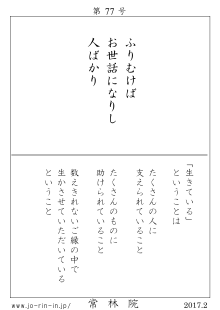 第 77 号
ふりむけば
お世話になりし
人ばかり
「生きている」
ということは
たくさんの人に
支えられていること
たくさんのものに
助けられていること
数えきれないご縁の中で
生かさせていただいている
ということ
www.jo-rin-in.jp/
常林院
2017.2